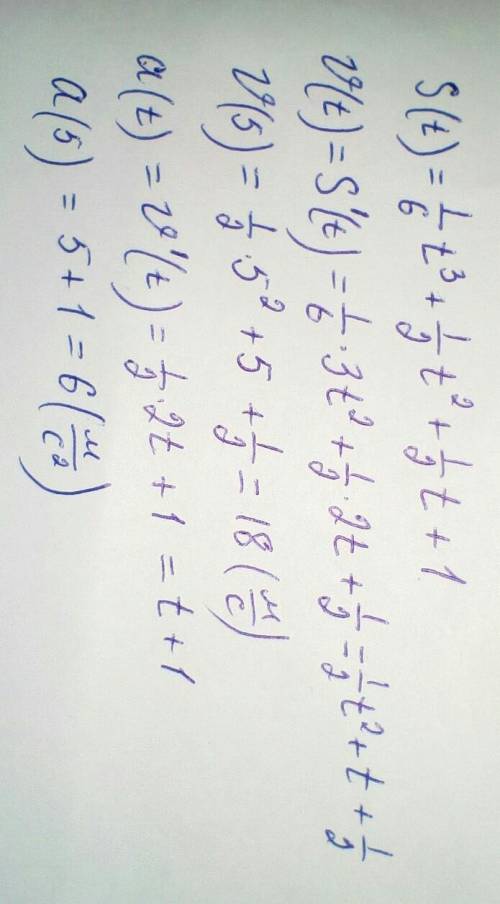 S(t) = 1/6 t³ + 1/2 t² + 1/2 t + 1
v(t) = S'(t) = 1/6 · 3t² + 1/2 · 2t + 1/2 = 1/2 t² + t + 1/2
v(5) = 1/2 · 5² + 5 + 1/2 = 18 (м/с)
a(t) = v'(t) = 1/2 · 2t + 1 = t + 1
a(5) = 5 + 1 = 6 (м/с²)